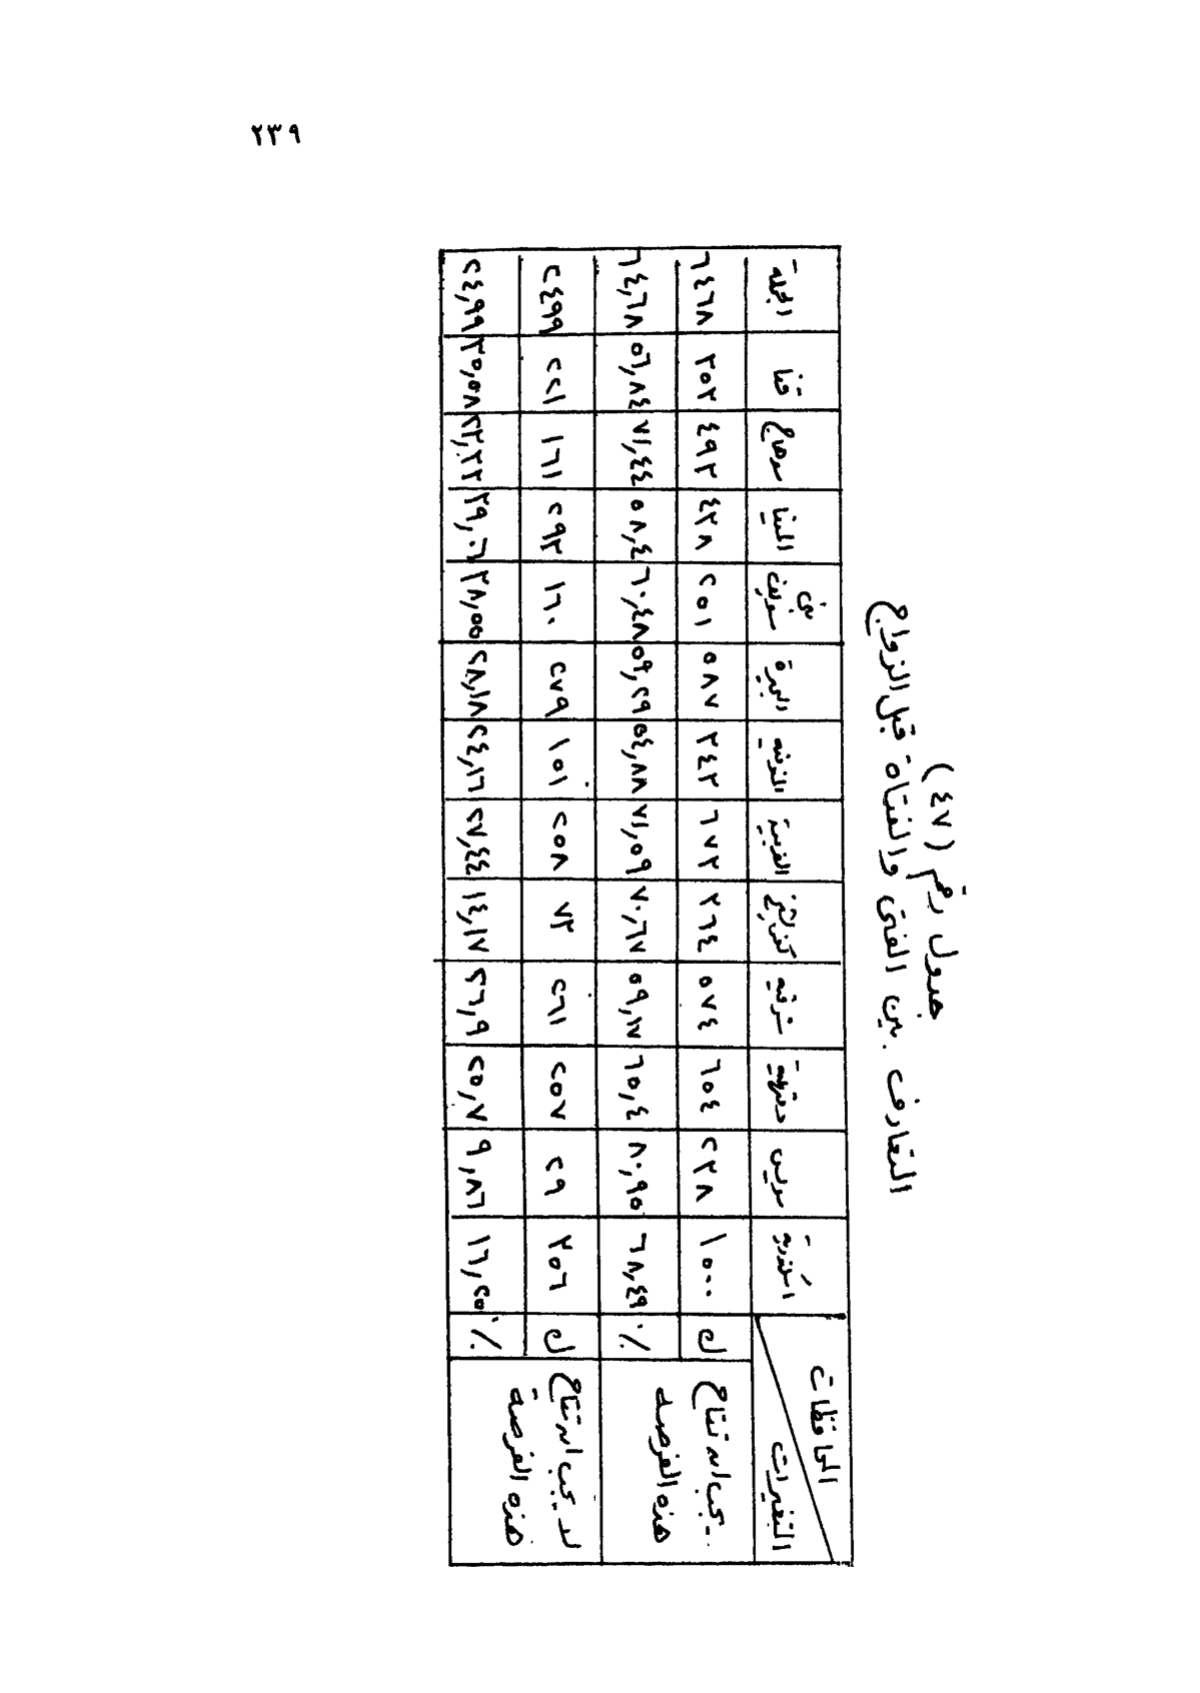 ٢٣٩
جدول رقم (٤٧)
التعارف بين الفتى والفتاة قبل الزواج
المحافظات اسكندرية سويس دقهلية شرقيه كفر الشيخ الغربية المنوفيه الجيزة بنى سويف المنيا سوهاج قنا الجملة
المتغيرات
يجب ان تتاح هذه الفرصه
ك ١٥٠٠ ٢٣٨ ٦٥٤ ٥٧٤ ٣٦٤ ٦٧٣ ٣٤٣ ٥٨٧ ٢٥١ ٤٣٨ ٤٩٣ ٣٥٣ ٦٤٦٨
٪ ٦٨,٤٩ ٨٠,٩٥ ٦٥,٤ ٥٩,١٧ ٧٠,٦٧ ٧١,٥٩ ٥٤,٨٨ ٥٩,٢٩ ٦٠,٤٨ ٥٨,٤ ٧١,٤٤ ٥٦,٨٤ ٦٤,٦٨
لا يجب ان تتاح هذه الفرصة
ك ٣٥٦ ٢٩ ٢٥٧ ٢٦١ ٧٣ ٢٥٨ ١٥١ ٢٧٩ ١٦٠ ٢٩٣ ١٦١ ٢٢١ ٢٤٩٩
٪ ١٦,٢٥ ٩,٨٦ ٢٥,٧ ٢٦,٩ ١٤,١٧ ٢٧,٤٤ ٢٤,١٦ ٢٨,١٨ ٣٨,٥٥ ٣٩,٠٦ ٢٣,٣٣ ٣٥,٥٨ ٢٤,٩٩